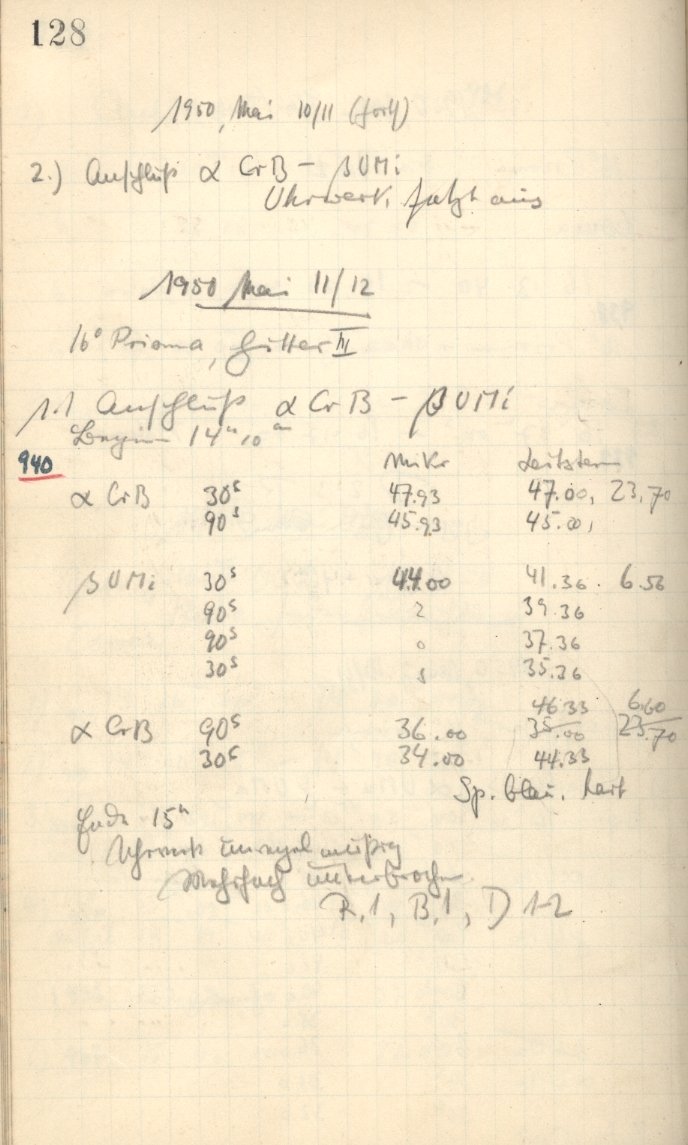 128
1950, Mai 10/11 (forts)
2.) Anschluß α CrB – β UMi
Uhrwerk setzt aus
1950 Mai 11/12
16° Prisma, Gitter III
1.) Anschluß α CrB – β UMi
Beginn 14ʰ10ᵐ
940
Mikr Leitstern
α CrB 30ˢ 47.93 47.00, 23,70
90ˢ 45.93 45.00,
β UMi 30ˢ 44.00 41.36. 6.56
90ˢ 2 39.36
90ˢ 0 37.36
30ˢ 8 35.36
46.33 6.60
α CrB 90ˢ 36.00 35.00 23.70
30ˢ 34.00 44.33
Sp. blau. hart
Ende 15ʰ
Uhrwerk unregelmäßig
Mehrfach unterbrochen.
R.1, B.1, D 1-2